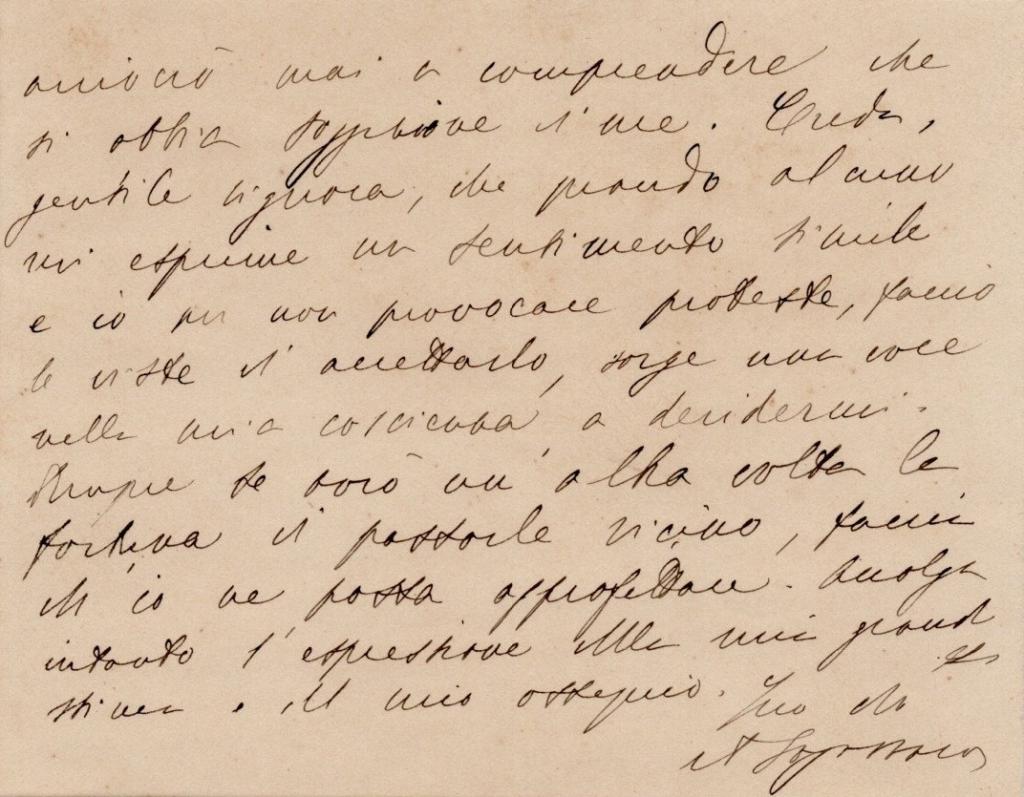 arriverò mai a comprendere che
si abbia soggezione di me. Creda,
gentile signora, che quando alcuno
mi esprime un sentimento simile
e io per non provocare proteste, faccio
le viste d'accettarlo, sorge una voce
nella mia coscienza a deridermi.
Dunque se avrò un'altra volta la
fortuna di passarle vicino, faccia
ch'io ne possa approfittare. Accolga
intanto l'espressione della mia grand
stima e del mio ossequio. Suo
A Fogazzaro